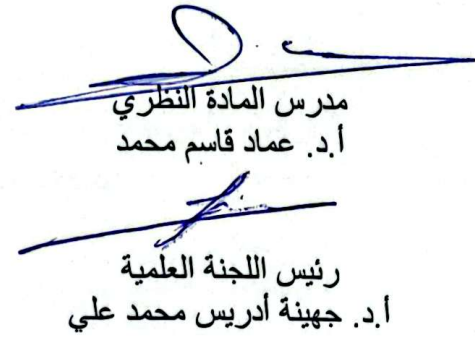 مدرس المادة النظري
أ.د. عماد قاسم محمد
رئيس اللجنة العلمية
أ.د. جهينة أدريس محمد علي